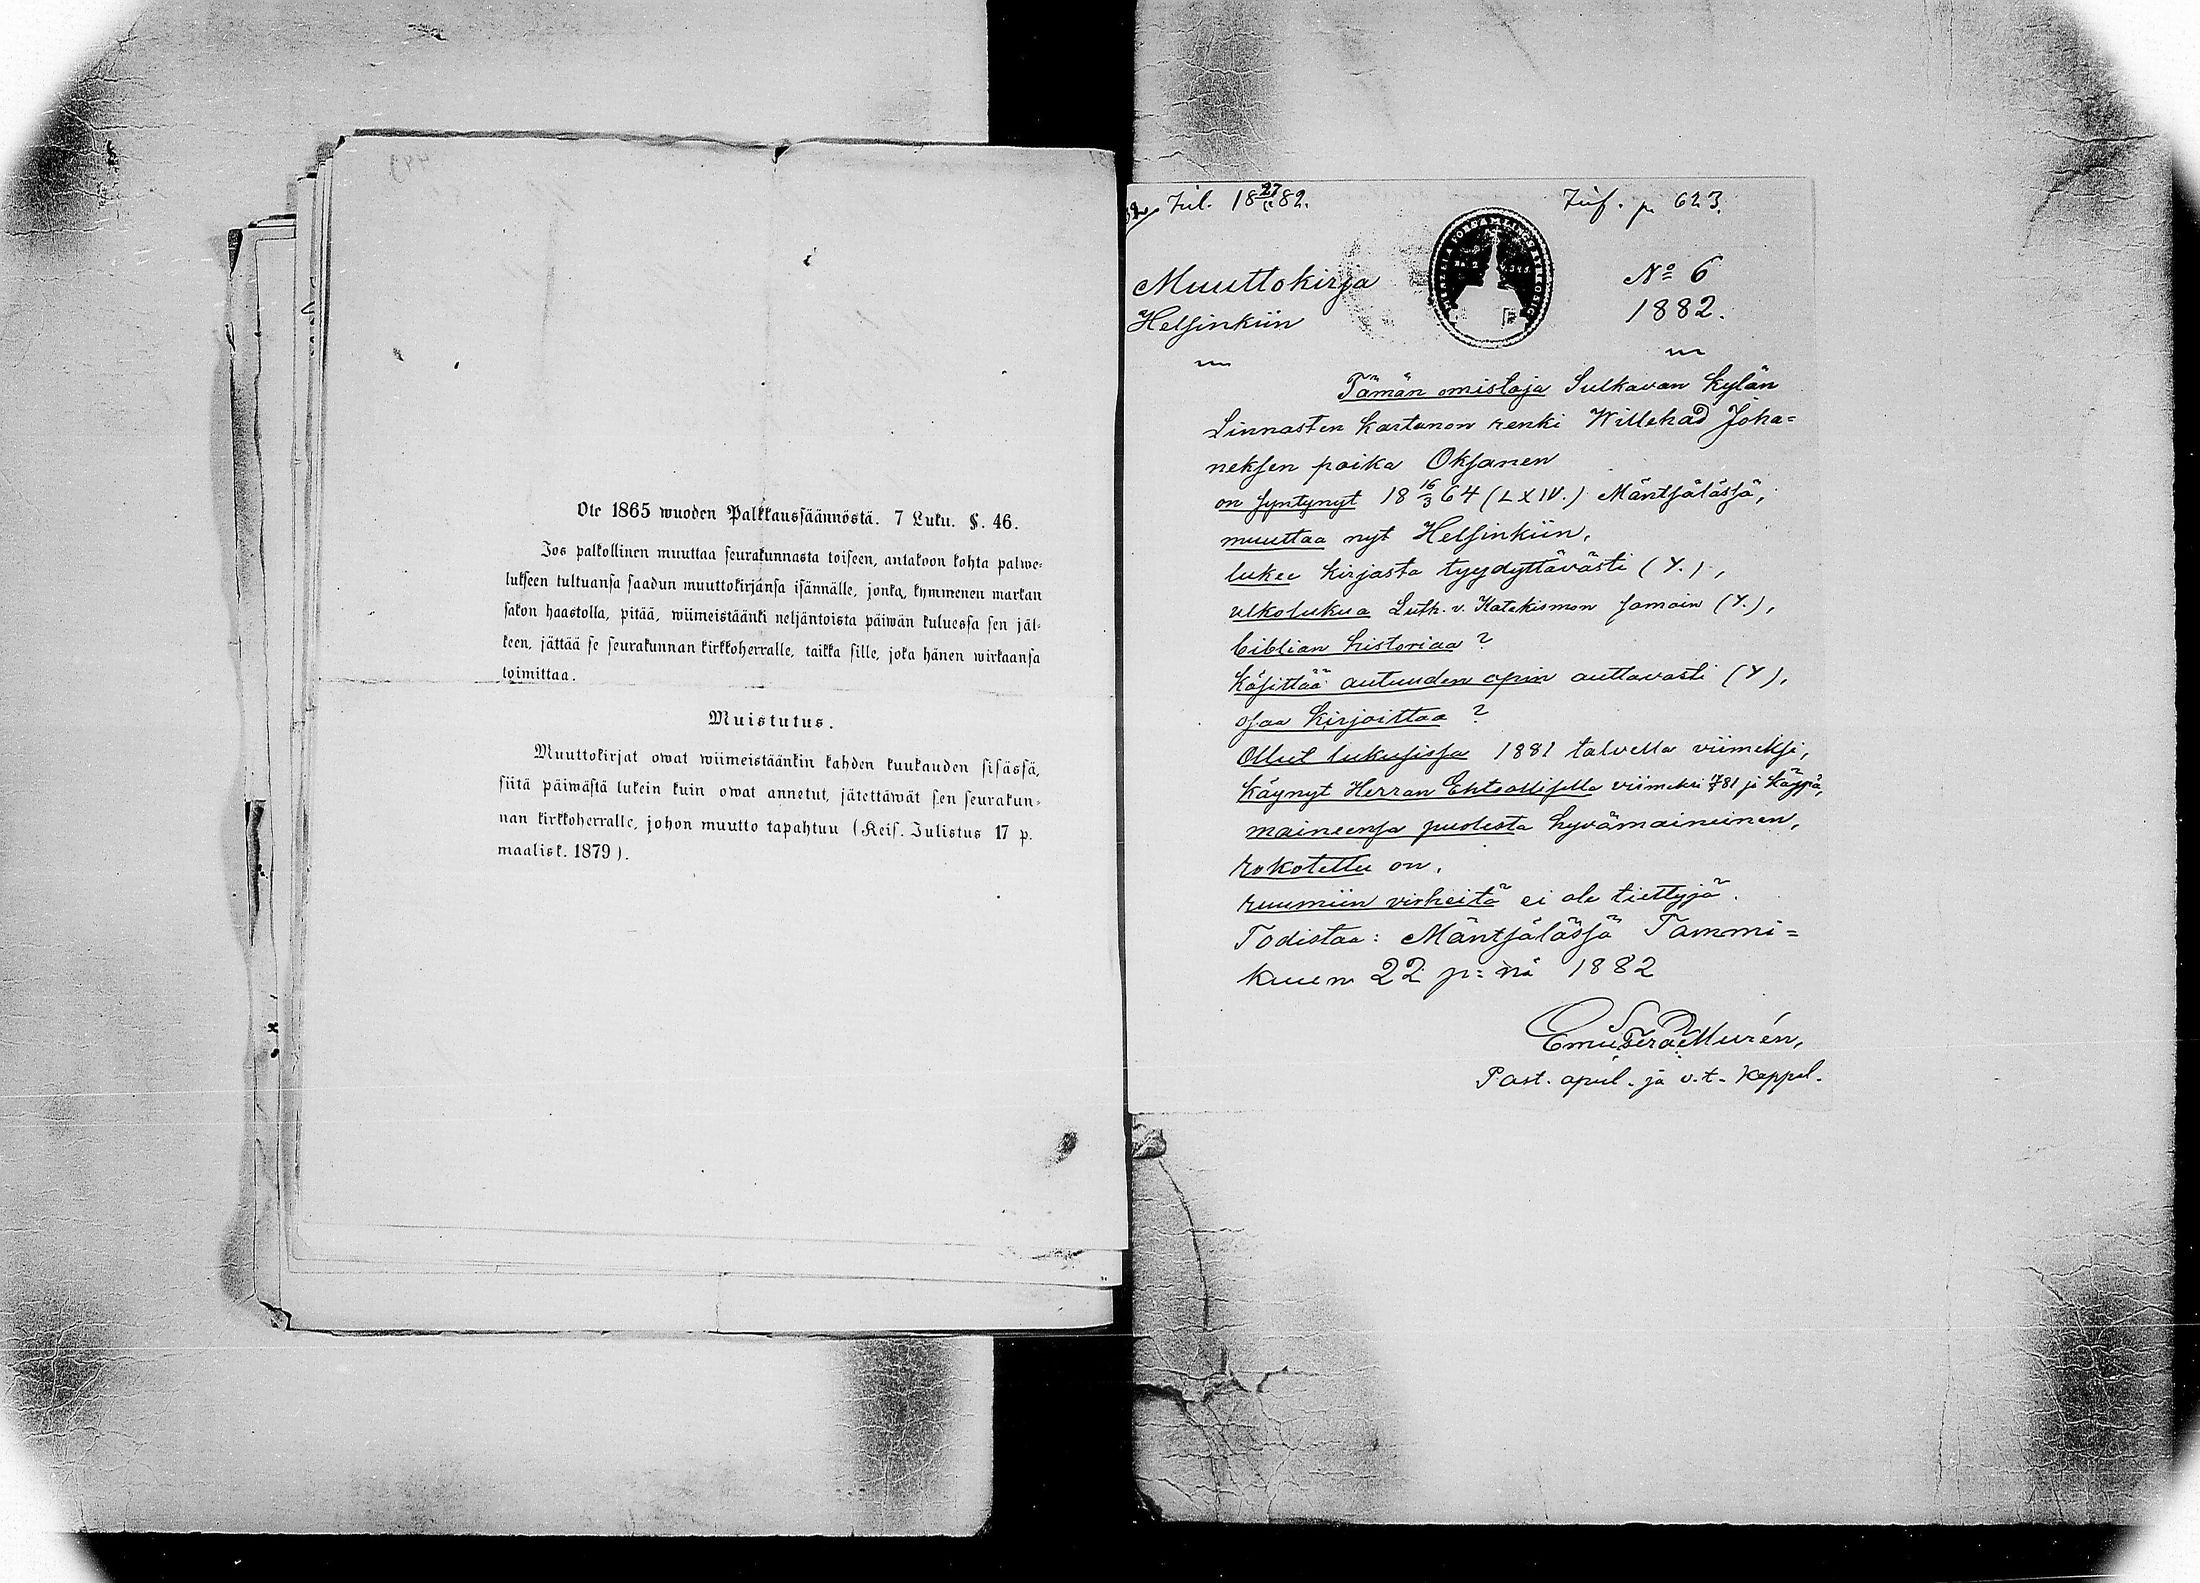 Ote 1865 wuoden Palkkaussäännöstä. 7 Luku. §. 46.
Jos palkollinen muuttaa seurakunnasta toiseen, antakoon kohta palwe=
lukseen tultuansa saadun muuttokirjansa isännälle, jonka, kymmenen markan
sakon haastolla, pitää, wiimeistäänki neljäntoista päiwän kuluessa sen jäl=
keen, jättää se seurakunnan kirkkoherralle, taikka sille, joka hänen wirkaansa
toimittaa.
Muistutus.
Muuttokirjat owat wiimeistäänkin kahden kuukauden sisässä,
siitä päiwästä lukein kuin owat annetut, jätettäwät sen seurakun=
nan kirkkoherralle, johon muutto tapahtuu (Keis. Julistus 17 p.
maalisk. 1879).
18 27/ 82. p. 623.
Muuttokirja
Helsinkiin
No 6
1882.
Tämän omistaja Sulkavan kylän
Linnasten kartanon renki Willehad Joha=
neksen poika Oksanen
on syntynyt 18 16/3 64 (LXIV.) Mäntsälässä,
muuttaa nyt Helsinkiin,
lukee kirjasta tyydyttävästi (Y.),
ulkolukua Luth. v. Katekismon samoin (Y.),
biblian historiaa ?
käsittää autuuden opin auttavasti (Y),
osaa kirjoittaa ?
Ollut lukusissa 1881 talvella viimeksi,
Käynyt Herran Ehtoollisella viimeksi 81 ja
maineensa puolesta hyvämaineinen,
rokotettu on,
ruumiin virheitä ei ole tiettyjä.
Todistaa: Mäntsälässä Tammi=
kuun 22 p:nä 1882
Murén,
Past. apul. ja v.t. kappal.